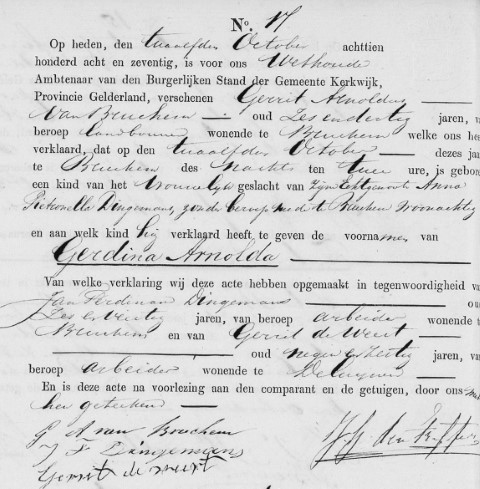 No. 17
Op heden, den twaalfden October achttien
honderd acht en zeventig, is voor ons Wethouder
Ambtenaar van den Burgerlijken Stand der Gemeente Kerkwijk,
Provincie Gelderland, verschenen Gerrit Arnoldus
van Bruchem oud Zes en dertig jaren, v
beroep landbouwer wonende te Bruchem welke ons he
verklaard, dat op den twaalfden October dezes ja
te Bruchem des nachts ten twee ure, is gebor
een kind van het vrouwelijk geslacht van zijn echtgenoot Anna
Petronella Dingemans, zonder beroep mede te Bruchem woonachtig
en aan welk kind hij verklaard heeft te geven de voornamen van
Gerdina Arnolda
Van welke verklaring wij deze acte hebben opgemaakt in tegenwoordigheid va
Jan Ferdinand Dingemans ou
Zes en veertig jaren, van beroep arbeider wonende t
Bruchem en van Gerrit de Weert
oud negen en jaren, va
beroep arbeider wonende te Delwijnen
En is deze acte na voorlezing aan den comparant en de getuigen, door ons met
hen geteekend
G A van Bruchem
J F Dingemans
Gerrit de weert